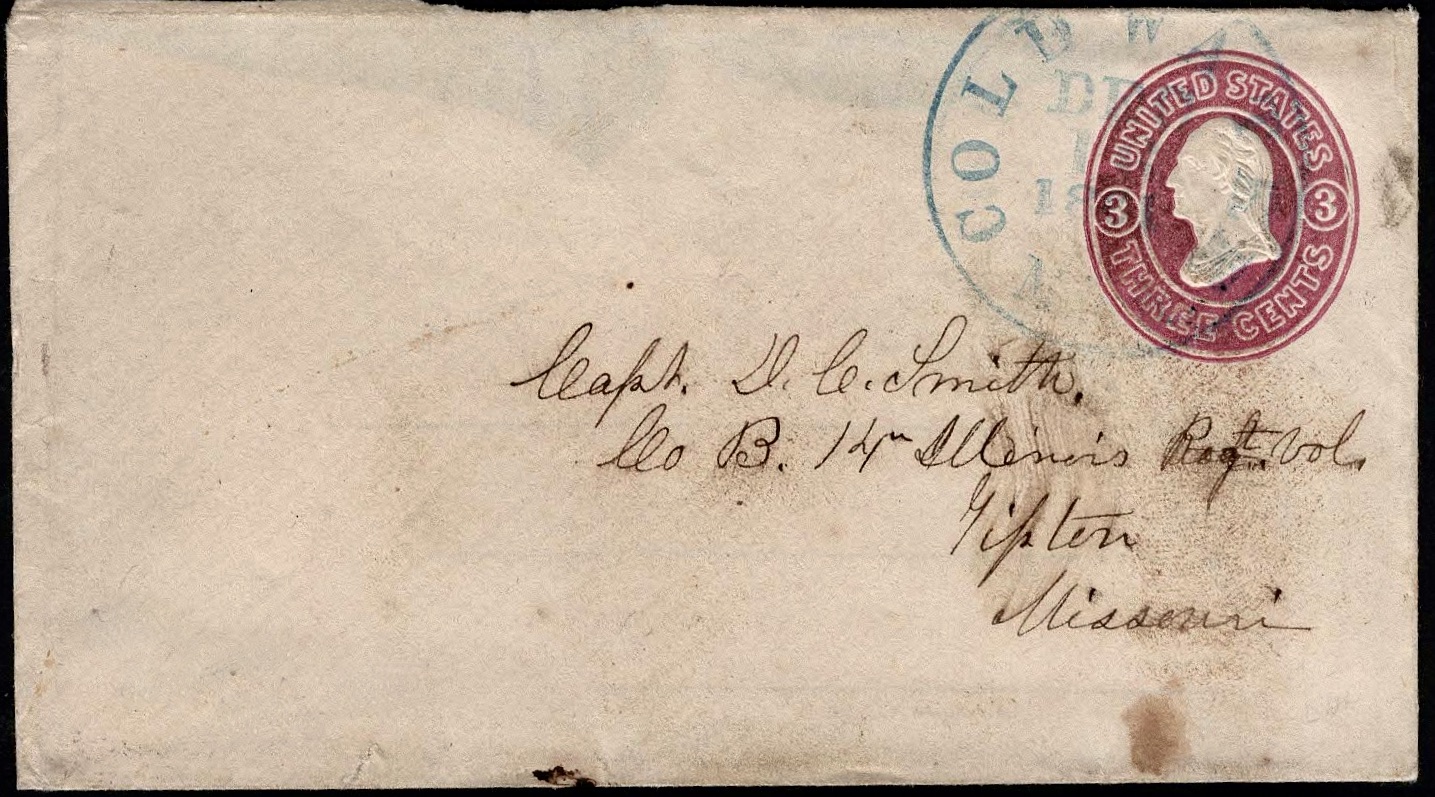 COLDWA
DE
18
UNITED STATES
3 3
THREE CENTS
Capt. D. C. Smith.
Co B. 14th Illinois Regt. Vol.
Tipton
Missouri